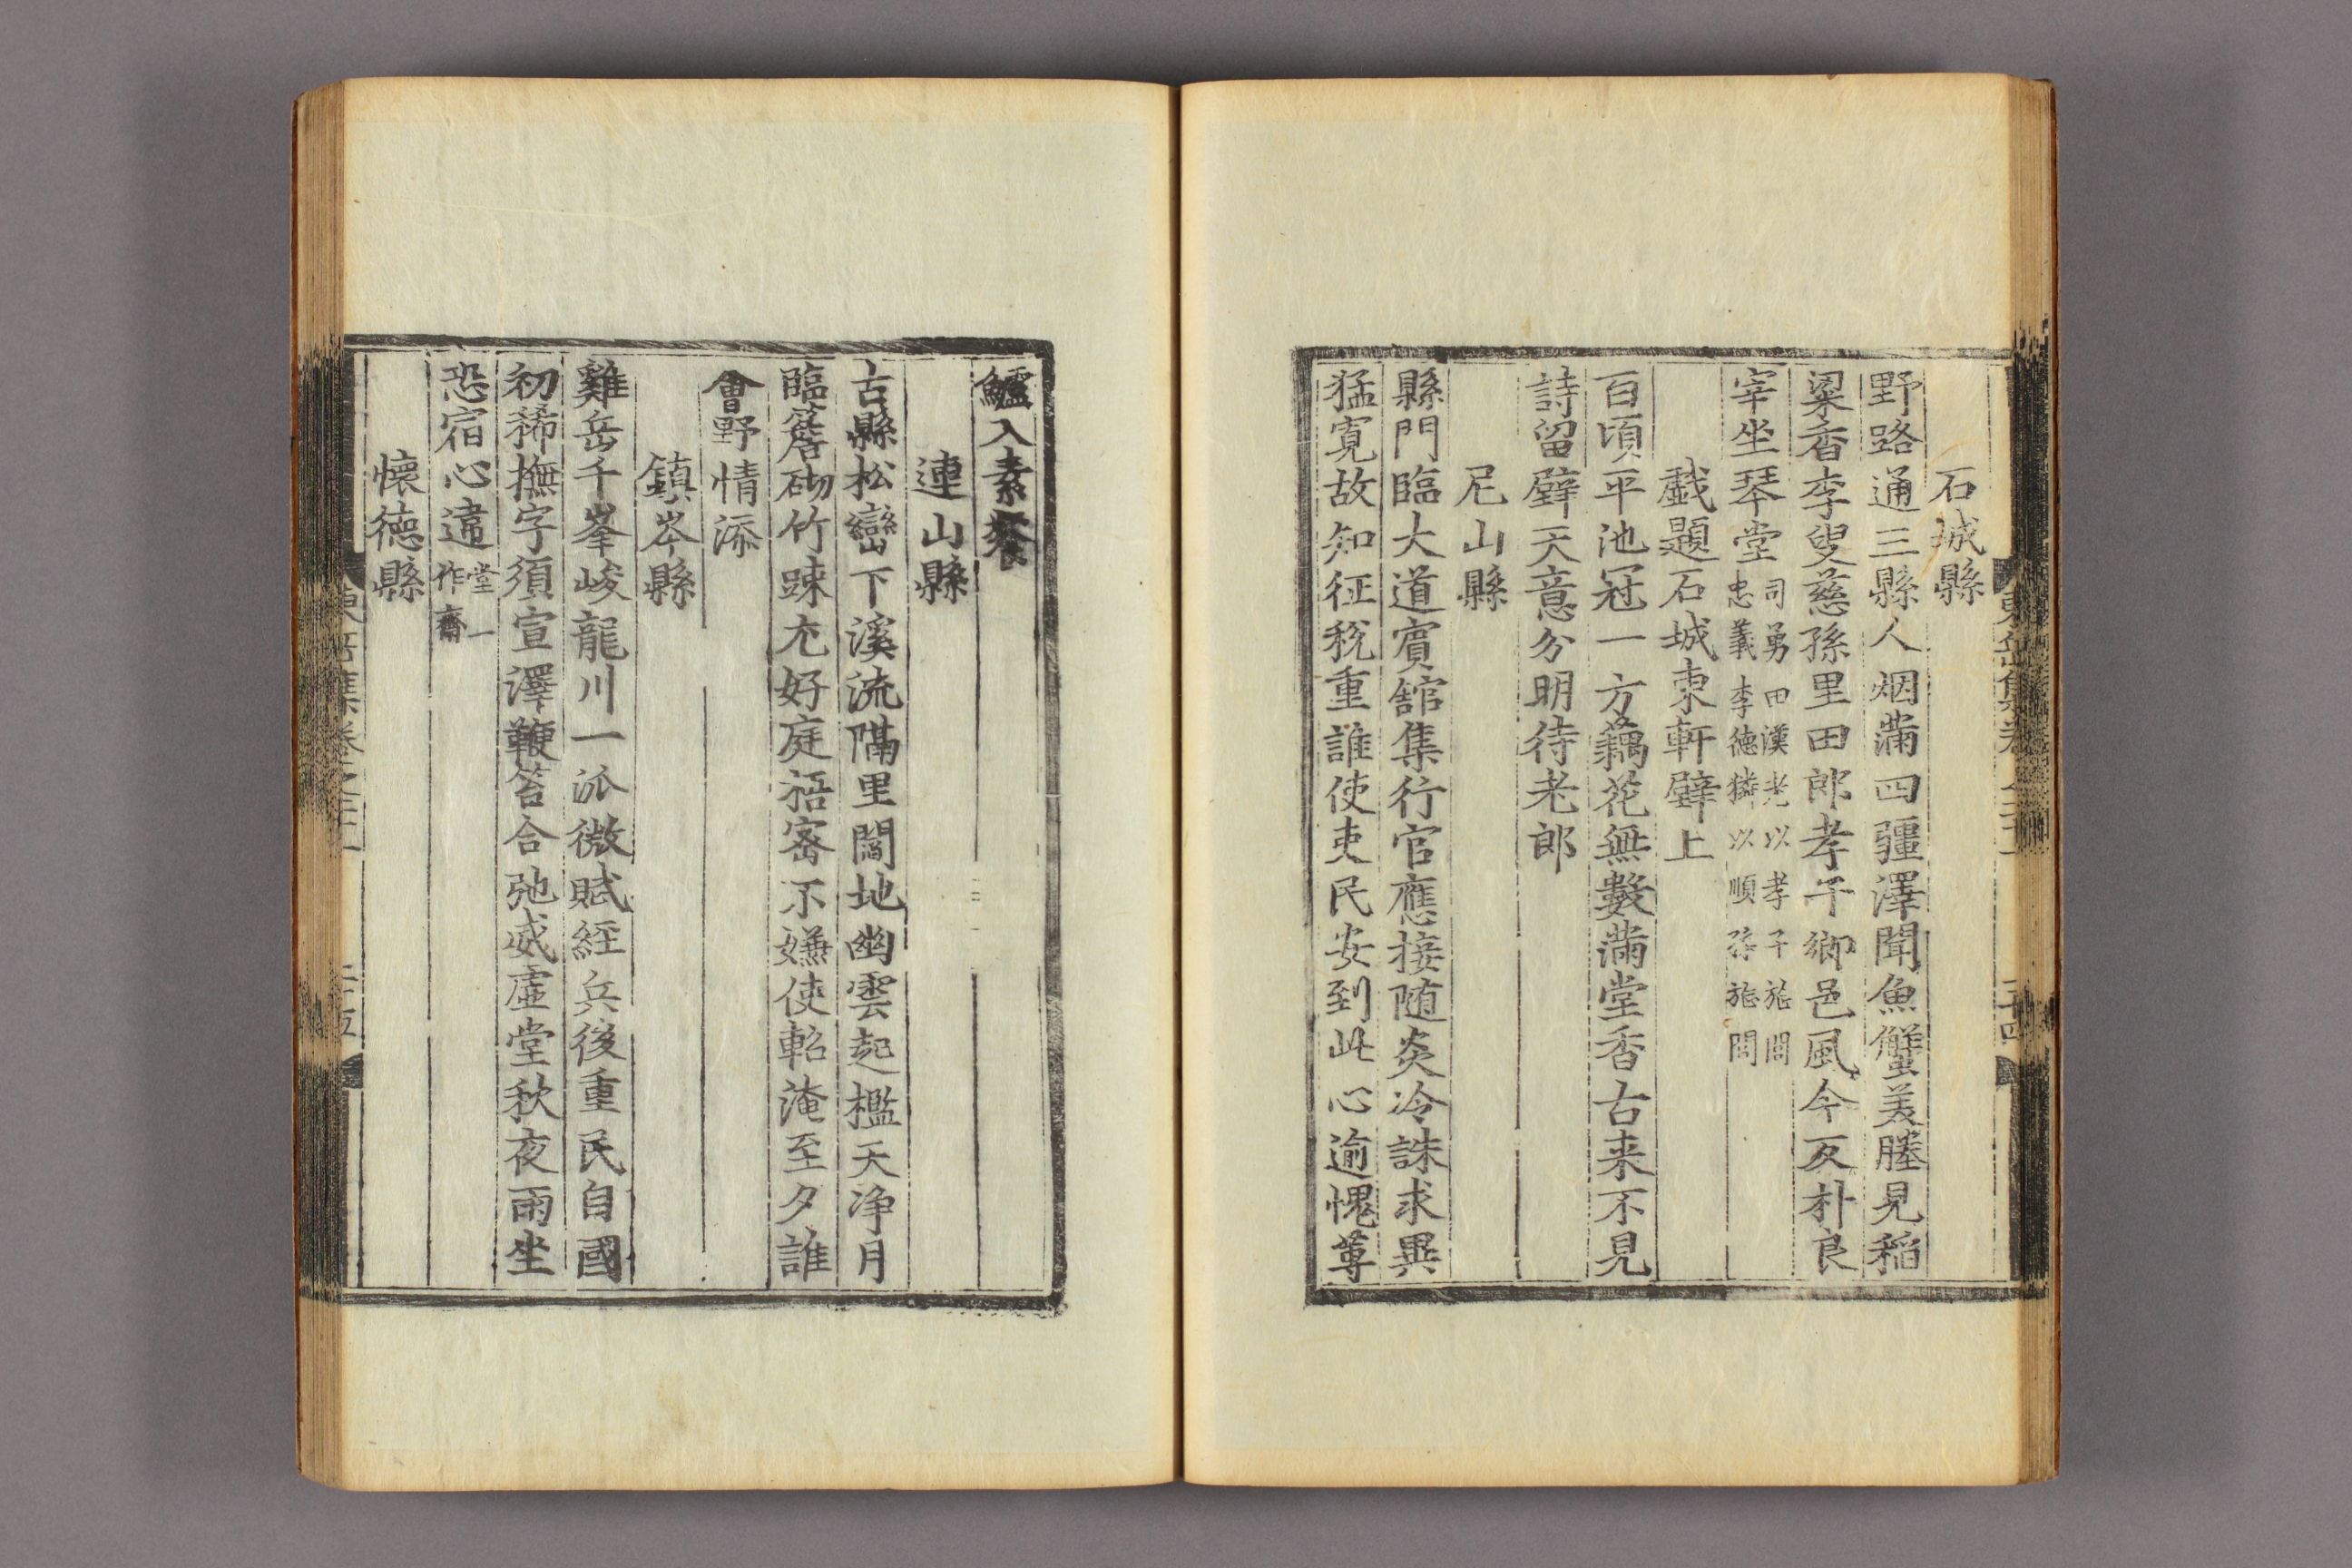 石城縣
野路通三縣人烟滿四疆澤聞魚蟹美塍見稻
粱香李叟慈孫里田郎孝子鄉邑風今反朴良
宰坐琴堂司勇田漢老以孝子旌閭
忠義李德獜以順孫旌閭
戱題石城東軒壁上
百頃平池冠一方藕花無數滿堂香古来不見
詩留壁天意分明待老郎
尼山縣
縣門臨大道賔舘集行官應接随炎冷誅求異
猛寛故知征稅重誰使吏民安到此心逾愧蓴
鱸入素飱
連山縣
古縣松巒下溪流隔里閭地幽雲起檻天净月
臨簷砌竹踈尤好庭梧宻不嫌使軺淹至夕誰
會野情添
鎮岑縣
雞岳千峯峻龍川一泒微賦經兵後重民自國
初稀撫字須宣澤鞭笞合弛威虛堂秋夜雨坐
恐宿心違堂一
作齋
懷德縣